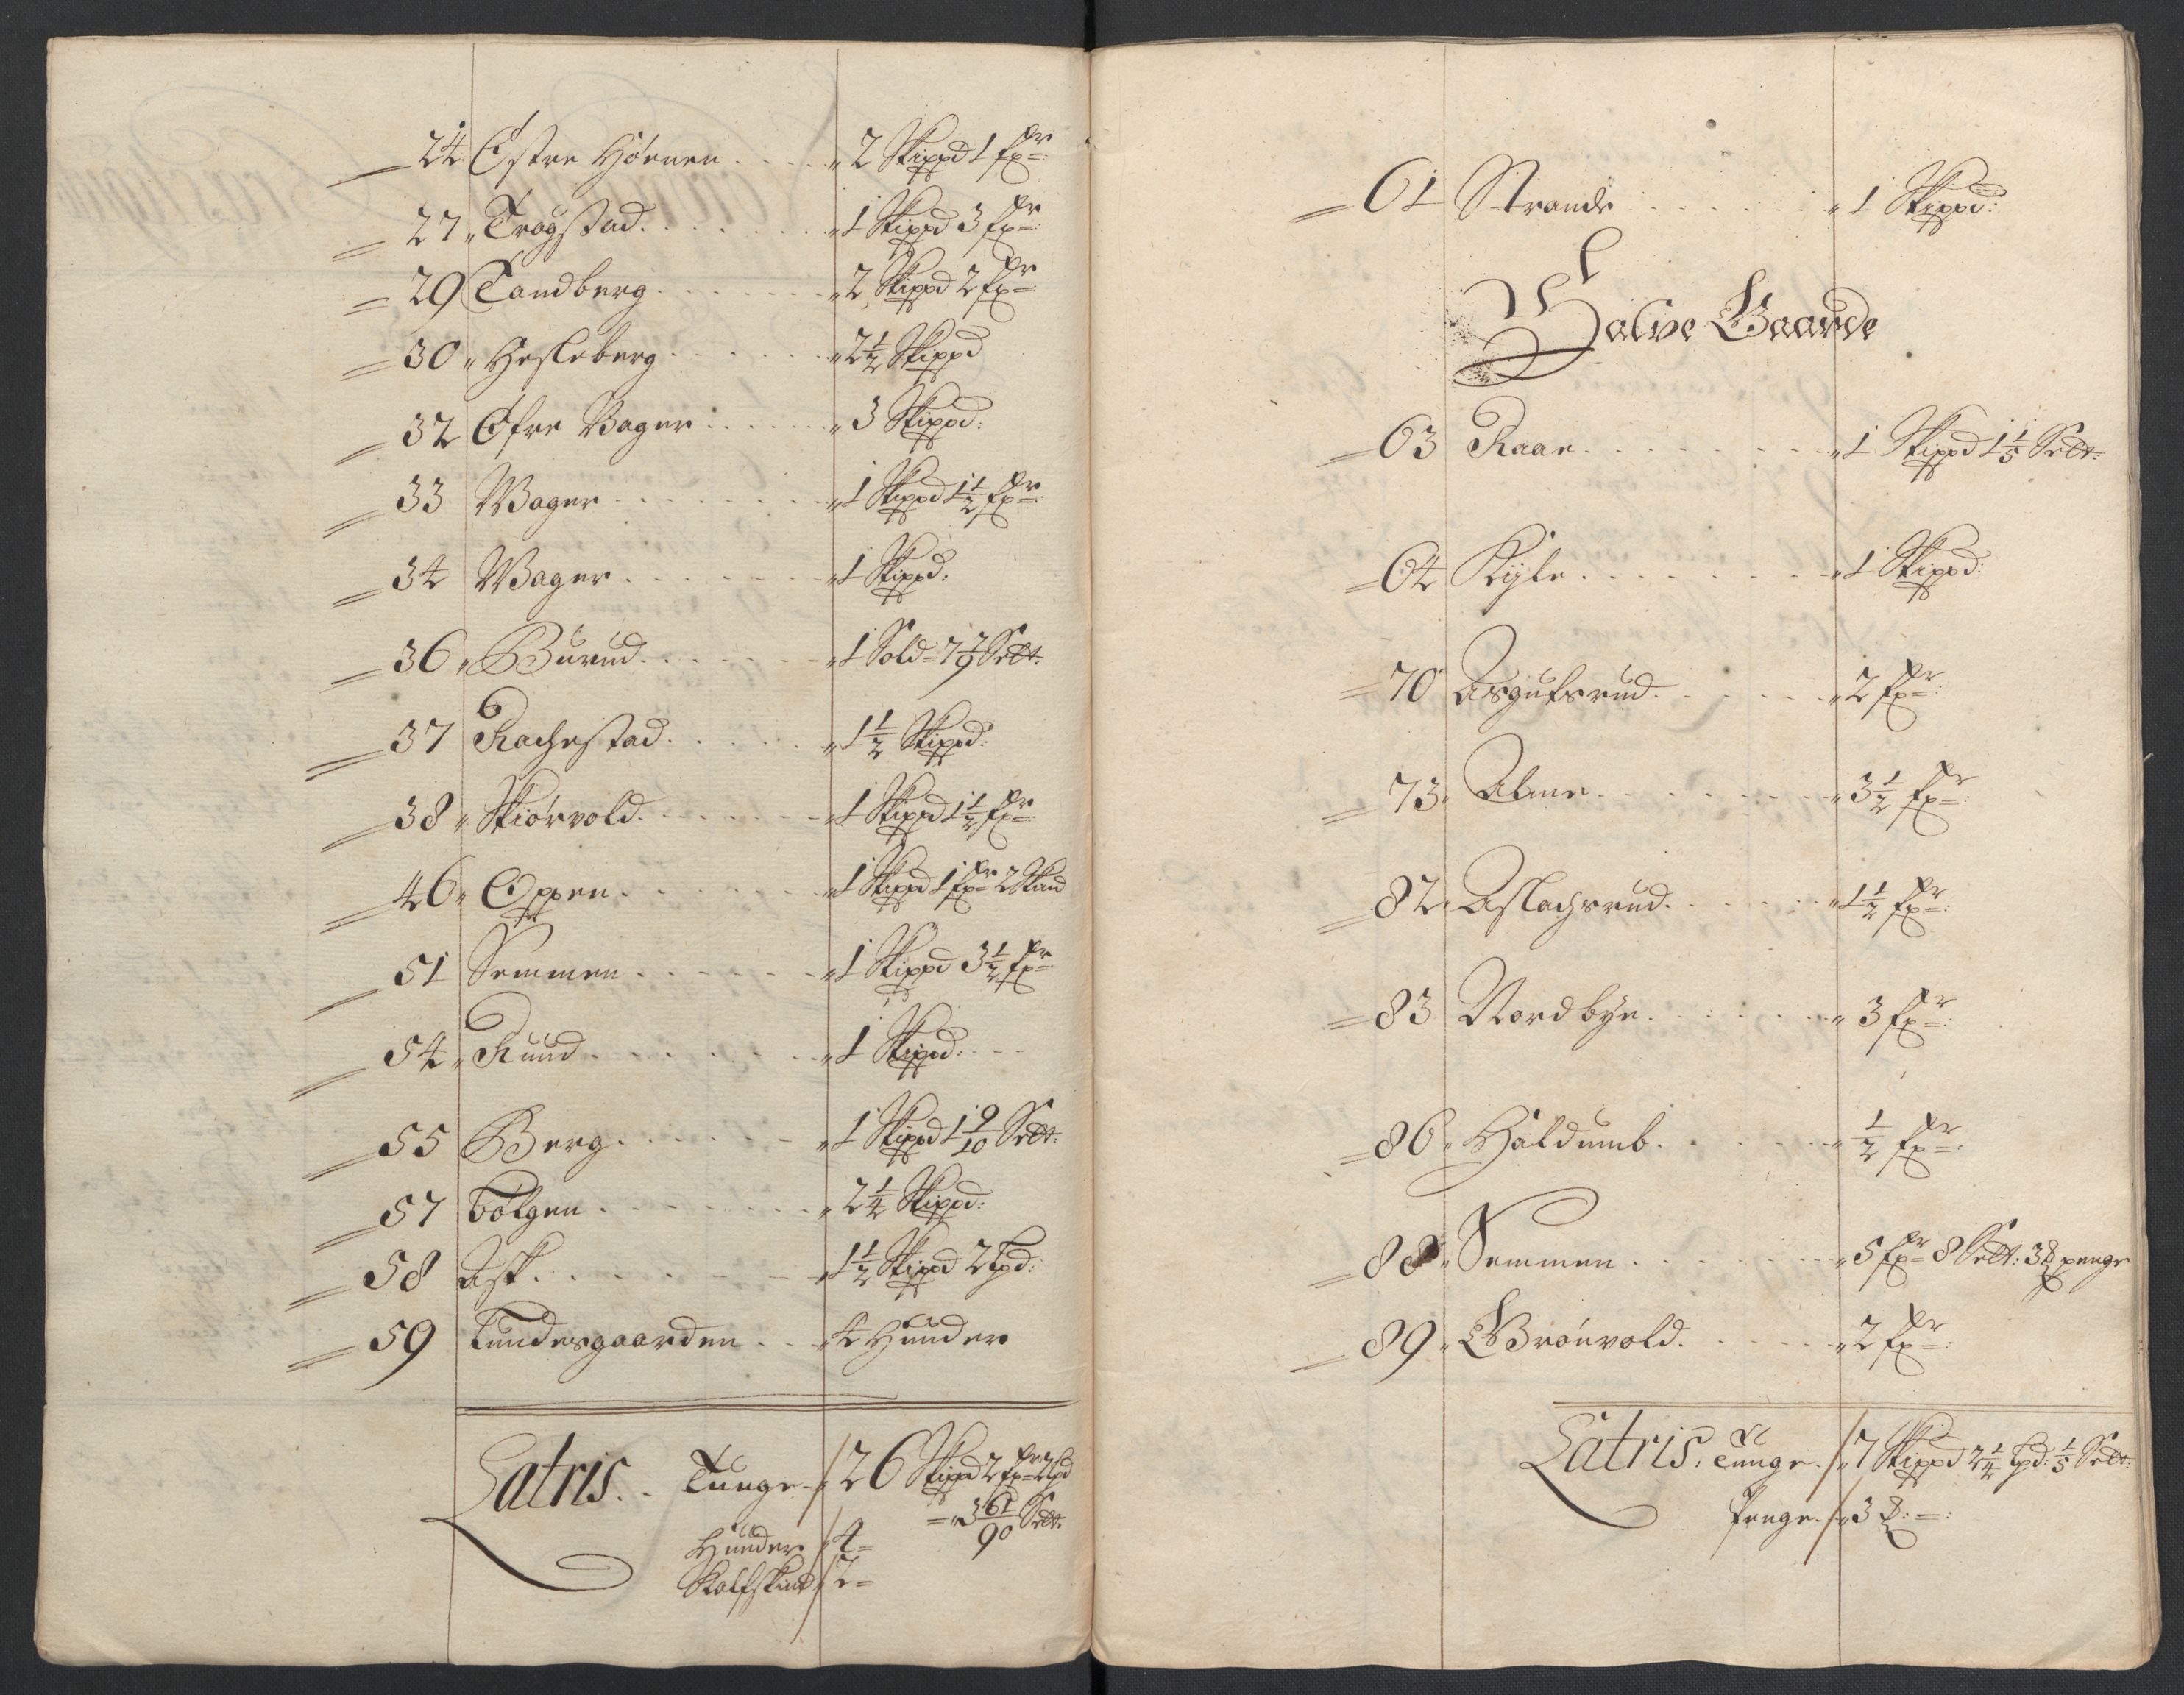 24 Østre Hörnen .... 2 Skippd 1 fr
27 Trögstad ...... 1 Skippd 3 fr
29 Tandberg ...... 2 Skippd 2 fr
30 Hesleberg ...... 2 1/2 Skippd
32 Øfre Wager ..... 3 Skippd:
33 Wager ...... 1 Skippd 1 1/2 fr
34 Wager ...... 1 Skippd:
36 Burud ...... 1 Sold 7 7/9 Sett:
37 Rachestad ..... 1 1/2 Skippd:
38 Skiörvold ...... 1 Skippd 1 1/2 fr
46 Oppen ...... 1 Skippd 1 fr 2 Skind
51 Semmen ...... 1 Skippd 3 1/2 fr
54 Ruud ...... 1 Skippd:
55 Berg ...... 1 Skippd 1 9/10 Sett:
57 Bölgen ...... 2 1/4 Skippd:
58 Ask ...... 1 1/2 Skippd 2 Lpd:
59 Lundesgaarden ... 4 Hünder
Latris .. Tunge 26 Skippd 2 fr 2 Lpd
3 61/90 Sett:
Hünder 4 =
Kalfskind 2 =
61 Strande ...... 1 Skippd:
Halve Gaarde
63 Raae ...... 1 Skippd 1 1/5 Sett:
64 Kijle ...... 1 Skippd:
70 Asgutsrud ..... 2 fr
73 Alme ...... 3 1/2 fr
82 Aslachsrud ..... 1 1/2 fr
83 Nordbye ...... 3 fr
86 Haldumb ..... 1/2 fr
88 Semmen ...... 5 fr 8 Sett: 3 ß penge
89 Grönvold ..... 2 fr
Latris: Tunge 7 Skippd 2 1/4 Lpd: 1/5 Sett:
Penge 3 ß: =: